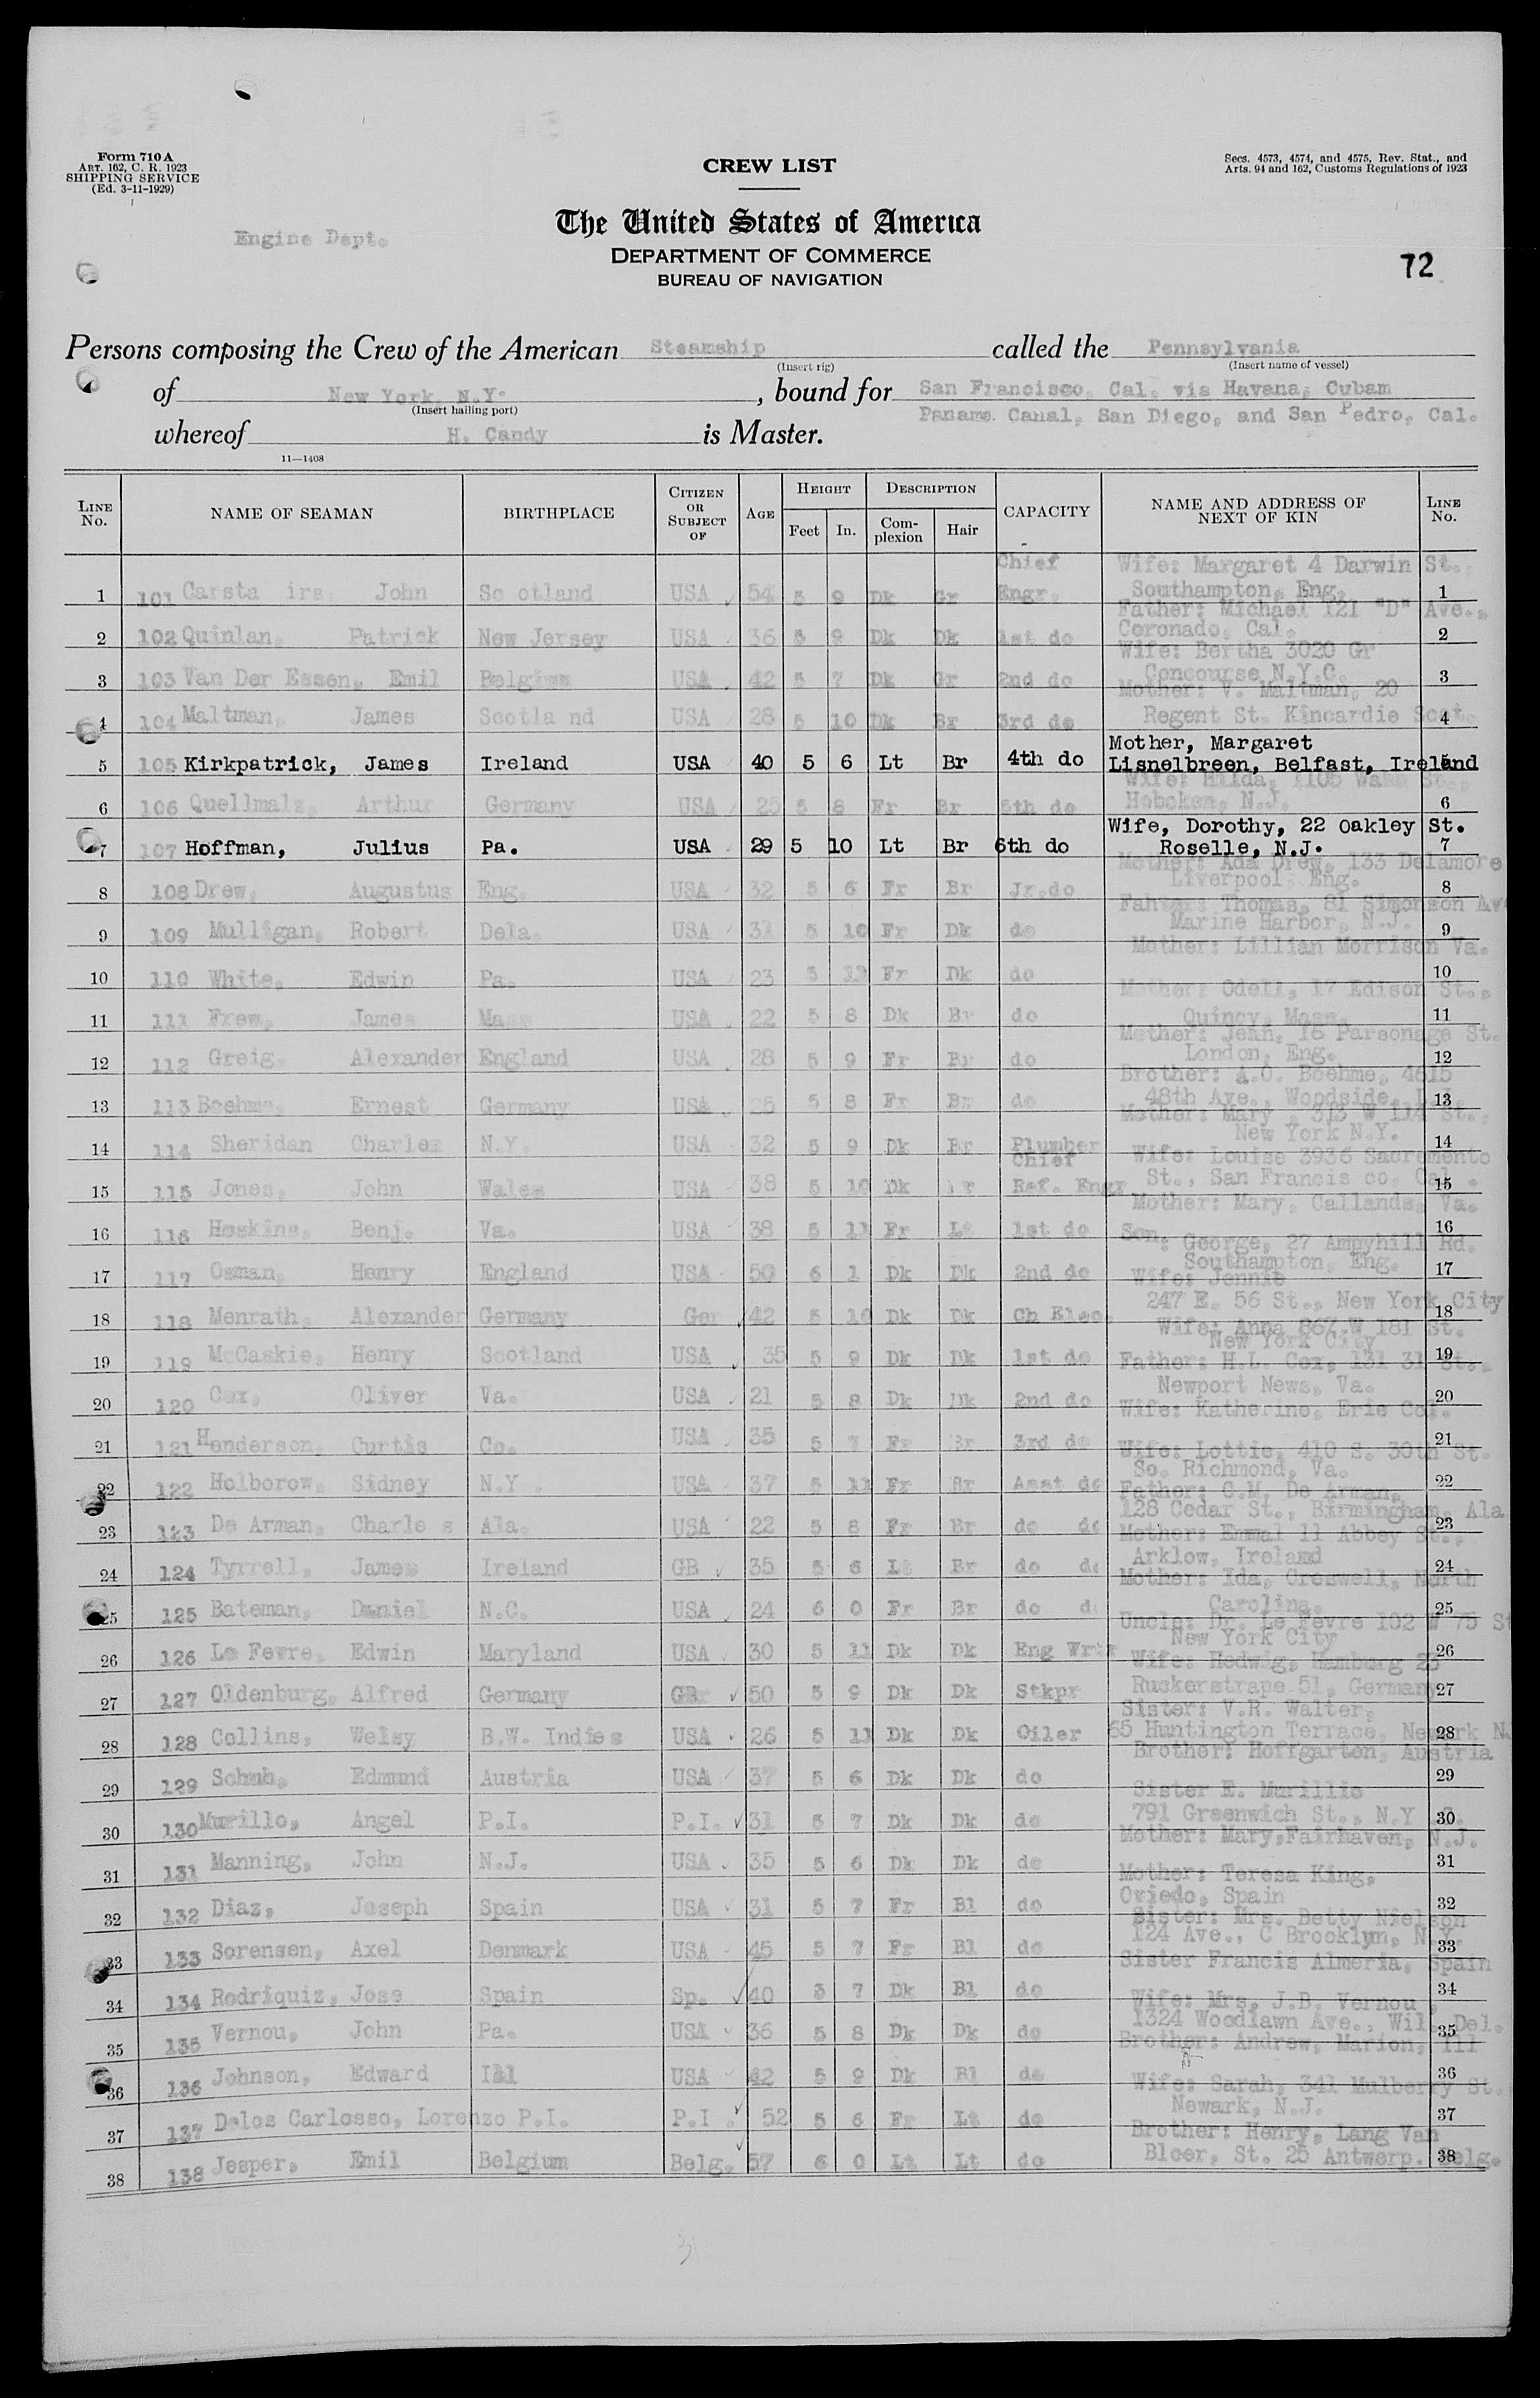 Form 710 A
ART. 162, C. R. 1923
SHIPPING SERVICE
(Ed. 3-11-1929)
CREW LIST
Secs. 4573, 4574, and 4575, Rev. Stat., and
Arts. 94 and 162, Customs Regulations of 1923
Engine Dept.
The United States of America
DEPARTMENT OF COMMERCE
BUREAU OF NAVIGATION
72
Persons composing the Crew of the American Steamship called the Pennsylvania
(Insert rig) (Insert name of vessel)
of New York N.Y. , bound for San Francisco, Cal. via Havana, Cubam
(Insert hailing port) Panama Canal, San Diego, and San Pedro, Cal.
whereof H. Candy is Master.
11—1408
LINE No. NAME OF SEAMAN BIRTHPLACE CITIZEN OR SUBJECT OF AGE HEIGHT Feet In. DESCRIPTION Complexion Hair CAPACITY NAME AND ADDRESS OF NEXT OF KIN LINE No.
Chief Wife: Margaret 4 Darwin St.
1 101 Carsta irs, John Sc otland USA 54 5 9 Dk Gr Engr. Southampton, Eng. 1
Father: Michael 121 "D" Ave.,
2 102 Quinlan, Patrick New Jersey USA 36 5 9 Dk Dk 1st do Coronado, Cal. 2
Wife: Bertha 3020 Gr
3 103 Van Der Essen, Emil Belgium USA 42 5 7 Dk Gr 2nd do Concourse N.Y.C. 3
Mother: V. Maltman, 20
4 104 Maltman, James Scotla nd USA 28 5 10 Dk Br 3rd do Regent St. Kincardie Scot. 4
Mother, Margaret
5 105 Kirkpatrick, James Ireland USA 40 5 6 Lt Br 4th do Lisnelbreen, Belfast, Ireland
Wife: Hilda, 1105 St.,
6 106 Quellmalz, Arthur Germany USA 25 5 8 Fr Br 5th do Hoboken, N.J. 6
Wife, Dorothy, 22 Oakley St.
7 107 Hoffman, Julius Pa. USA 29 5 10 Lt Br 6th do Roselle, N.J. 7
Mother: Ada Drew, 133 Delamore
8 108 Drew, Augustus Eng. USA 32 5 6 Fr Br Jr.do Liverpool, Eng. 8
Thomas, 81 Simonson Av
9 109 Mulligan, Robert Dela. USA 31 5 10 Fr Dk do Marine Harbor, N.J. 9
Mother: Lillian Morrison Va.
10 110 White, Edwin Pa. USA 23 5 11 Fr Dk do 10
Mother: Odell, 17 Edison St.,
11 111 Frew, James Mass USA 22 5 8 Dk Br do Quincy, Mass. 11
Mother: Jean, 16 Parsonage St.
12 112 Greig, Alexander England USA 28 5 9 Fr Br do London, Eng. 12
Brother: A.O. Boehme, 4615
13 113 Boehme, Ernest Germany USA 25 5 8 Fr Br do 48th Ave., Woodside, L.I. 13
Mother: Mary , 313 W 114 St.,
14 114 Sheridan Charles N.Y. USA 32 5 9 Dk Br Plumber New York N.Y. 14
Chief Wife: Louise 3936 Sacramento
15 115 Jones, John Wales USA 38 5 10 Dk Ref. Engr St., San Francis co, Cal. 15
Mother: Mary, Callands, Va.
16 116 Hoskins, Benj. Va. USA 38 5 11 Fr Lt 1st do 16
Son: George, 27 Ampyhill Rd.
17 117 Osman, Henry England USA 50 6 1 Dk Dk 2nd do Southampton, Eng. 17
Wife: Jennie
18 118 Menrath, Alexander Germany Ger 42 5 10 Dk Dk Ch Elec. 247 E. 56 St., New York City 18
Wife: Anna 867 W 181 St.
19 119 McCaskie, Henry Scotland USA 35 5 9 Dk Dk 1st do New York City 19
Father: H.L. Cox, 131 31 St.,
20 120 Cox, Oliver Va. USA 21 5 8 Dk Dk 2nd do Newport News, Va. 20
Wife: Katherine, Erie Col.
21 121 Henderson, Curtis Co. USA 35 5 7 Fr Br 3rd do 21
Wife: Lottie, 410 S. 30th St.
22 122 Holborow, Sidney N.Y . USA 37 5 11 Fr Br Asst do So. Richmond, Va. 22
Father: C.M. De Arman,
23 123 De Arman, Charle s Ala. USA 22 5 8 Fr Br do do 128 Cedar St., Birmingham, Ala 23
Mother: Emmal 11 Abbey St.,
24 124 Tyrrell, James Ireland GB 35 5 6 Lt Br do do Arklow, Ireland 24
Mother: Ida, Creswell, North
25 125 Bateman, Daniel N.C. USA 24 6 0 Fr Br do d Carolina. 25
Uncle: Dr. Le Fevre 102 W 75 St
26 126 Le Fevre, Edwin Maryland USA 30 5 11 Dk Dk Eng Wrtr New York City 26
Wife: Hedwig, Hamburg 23
27 127 Oldenburg, Alfred Germany 50 5 9 Dk Dk Stkpr Ruckerstrape 51, Germany 27
Sister: V.R. Walter,
28 128 Collins, Welsy B.W. Indies USA 26 5 11 Dk Dk Oiler 65 Huntington Terrace, Newark NJ 28
Brother: Hoffgarten, Austria
29 129 Schuh, Edmund Austria USA 37 5 6 Dk Dk do 29
Sister E. Murillio
30 130 Murillo, Angel P.I. P.I. 31 5 7 Dk Dk do 791 Greenwich St., N.Y .C. 30
Mother: Mary,Fairhaven, N.J.
31 131 Manning, John N.J. USA 35 5 6 Dk Dk do 31
Mother: Teresa King,
32 132 Diaz, Joseph Spain USA 31 5 7 Fr Bl do Oviedo, Spain 32
Sister: Mrs. Betty Nielson
33 133 Sorensen, Axel Denmark USA 45 5 7 Fr Bl do 124 Ave., C Brooklyn, N.Y. 33
Sister Francis Almeria, Spain
34 134 Rodriquiz, Jose Spain Sp. 40 5 7 Dk Bl do 34
Wife: Mrs. J.B. Vernou
35 135 Vernou, John Pa. USA 36 5 8 Dk Dk do 1324 Woodlawn Ave., Wil. Del. 35
Brother: Andrew, Marion, Ill
36 136 Johnson, Edward Ill USA 42 5 9 Dk Bl do 36
Wife: Sarah, 341 Mulberry St.
37 137 Delos Carlosso, Lorenzo P.I. P.I . 52 5 6 Fr Lt do Newark, N.J. 37
Brother: Henry, Lang Van
38 138 Jesper, Emil Belgium Belg. 57 6 0 Lt Lt do Bloer, St. 25 Antwerp. Belg. 38
3